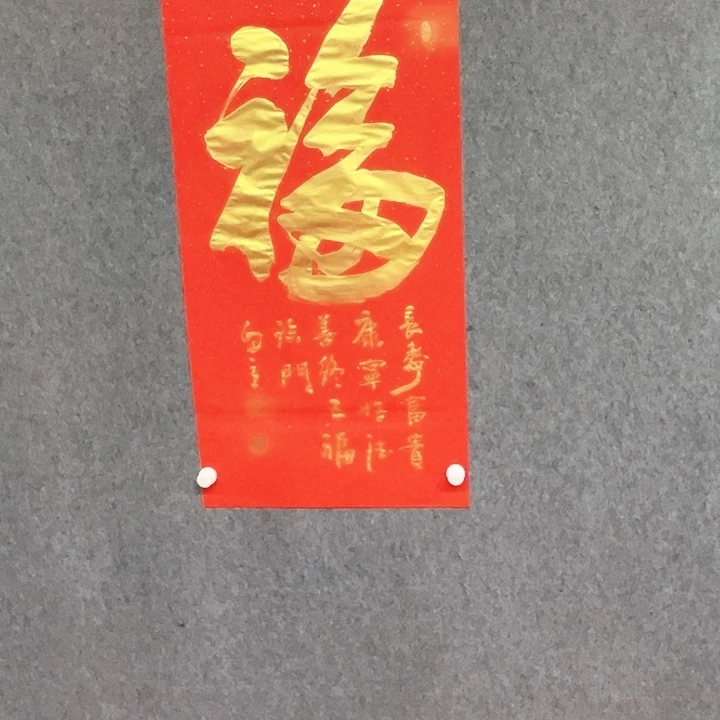 福
長壽富貴
康寧好德
善終五福
臨門